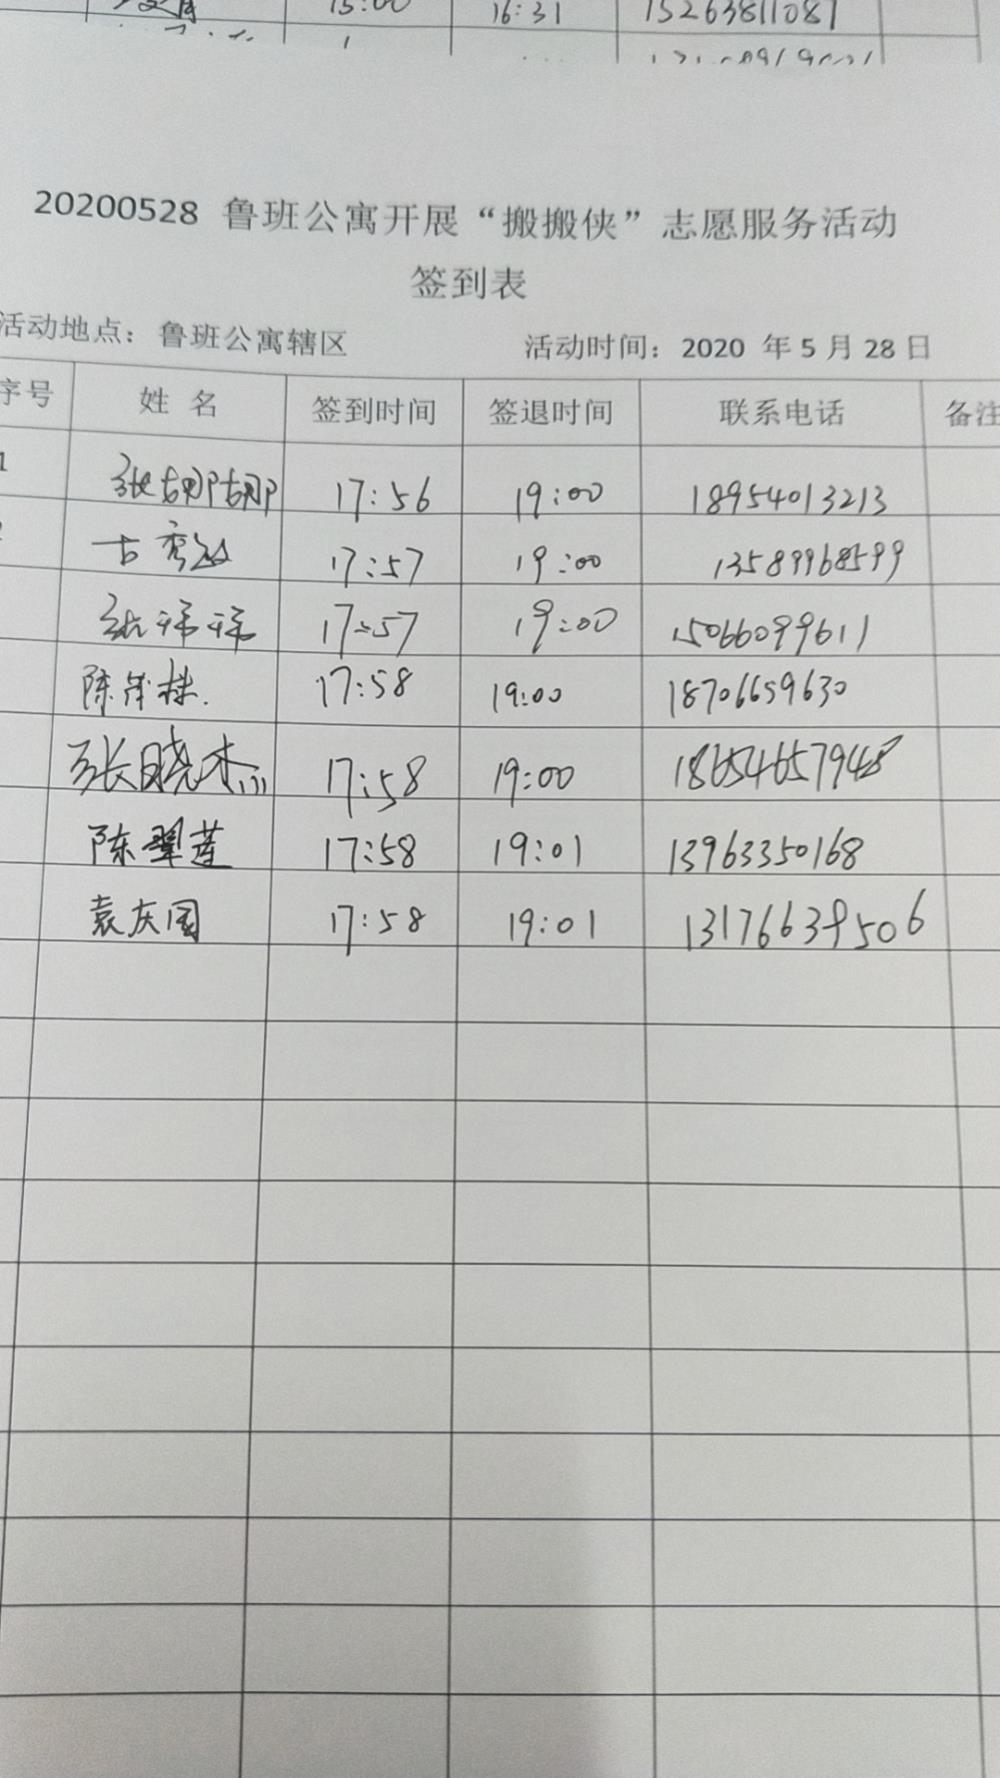 15:00 16:31 15263811087
20200528 鲁班公寓开展“搬搬侠”志愿服务活动
签到表
活动地点：鲁班公寓辖区 活动时间：2020 年 5 月 28 日
序号 姓 名 签到时间 签退时间 联系电话 备注
1 张娜娜 17:56 19:00 18954013213
17:57 19:00 13589968599
张 17:57 19:00 15066099611
陈 17:58 19:00 18706659630
张晓杰 17:58 19:00 18654657948
陈翠莲 17:58 19:01 13963350168
袁庆国 17:58 19:01 13176639506